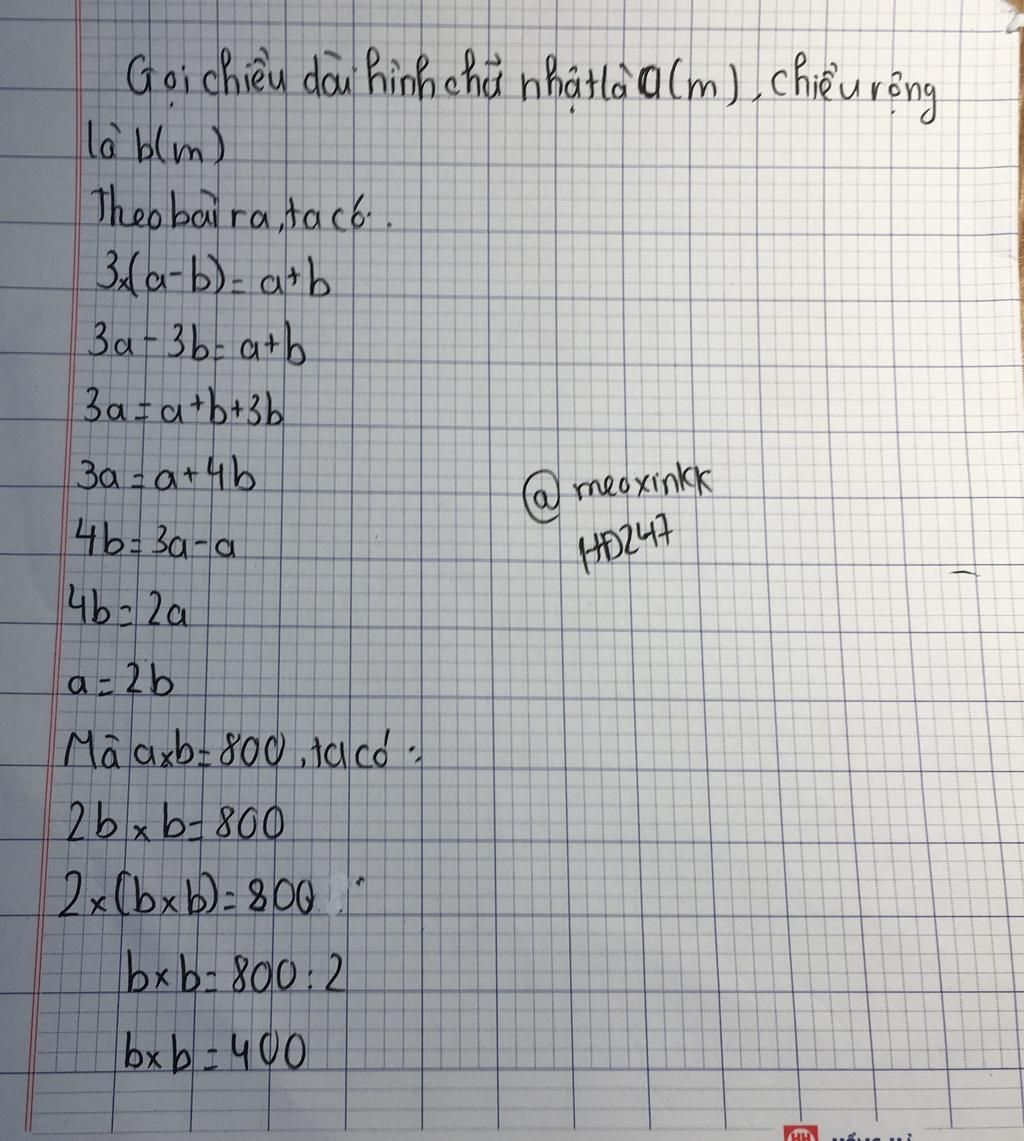 Gọi chiều dài hình chữ nhật là a(m), chiều rộng
là b(m)
Theo bài ra, ta có:
3×(a-b)=a+b
3a-3b=a+b
3a=a+b+3b
3a=a+4b
@meoxinkk
4b=3a-a
HD247
4b=2a
a=2b
Mà a×b=800, ta có:
2b×b=800
2×(b×b)=800
b×b=800:2
b×b=400
HH